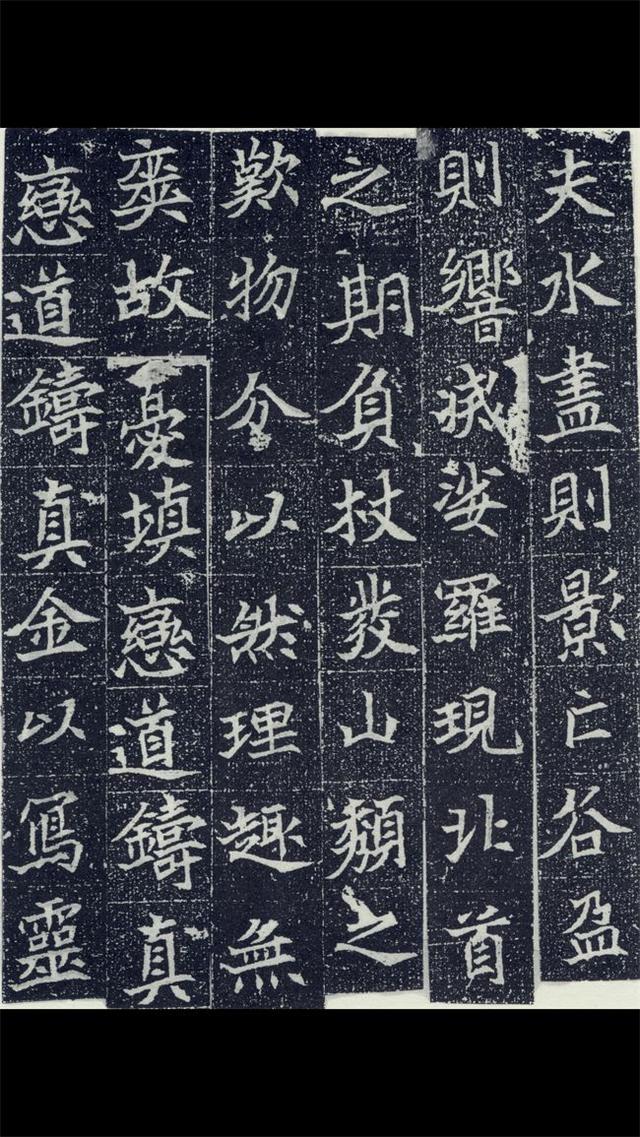 夫水盡則影亡谷盈
則響滅娑羅現北首
之期負杖發山頹之
歎物分以然理趣無
爽故憂填戀道鑄真
戀道鑄真金以寫靈